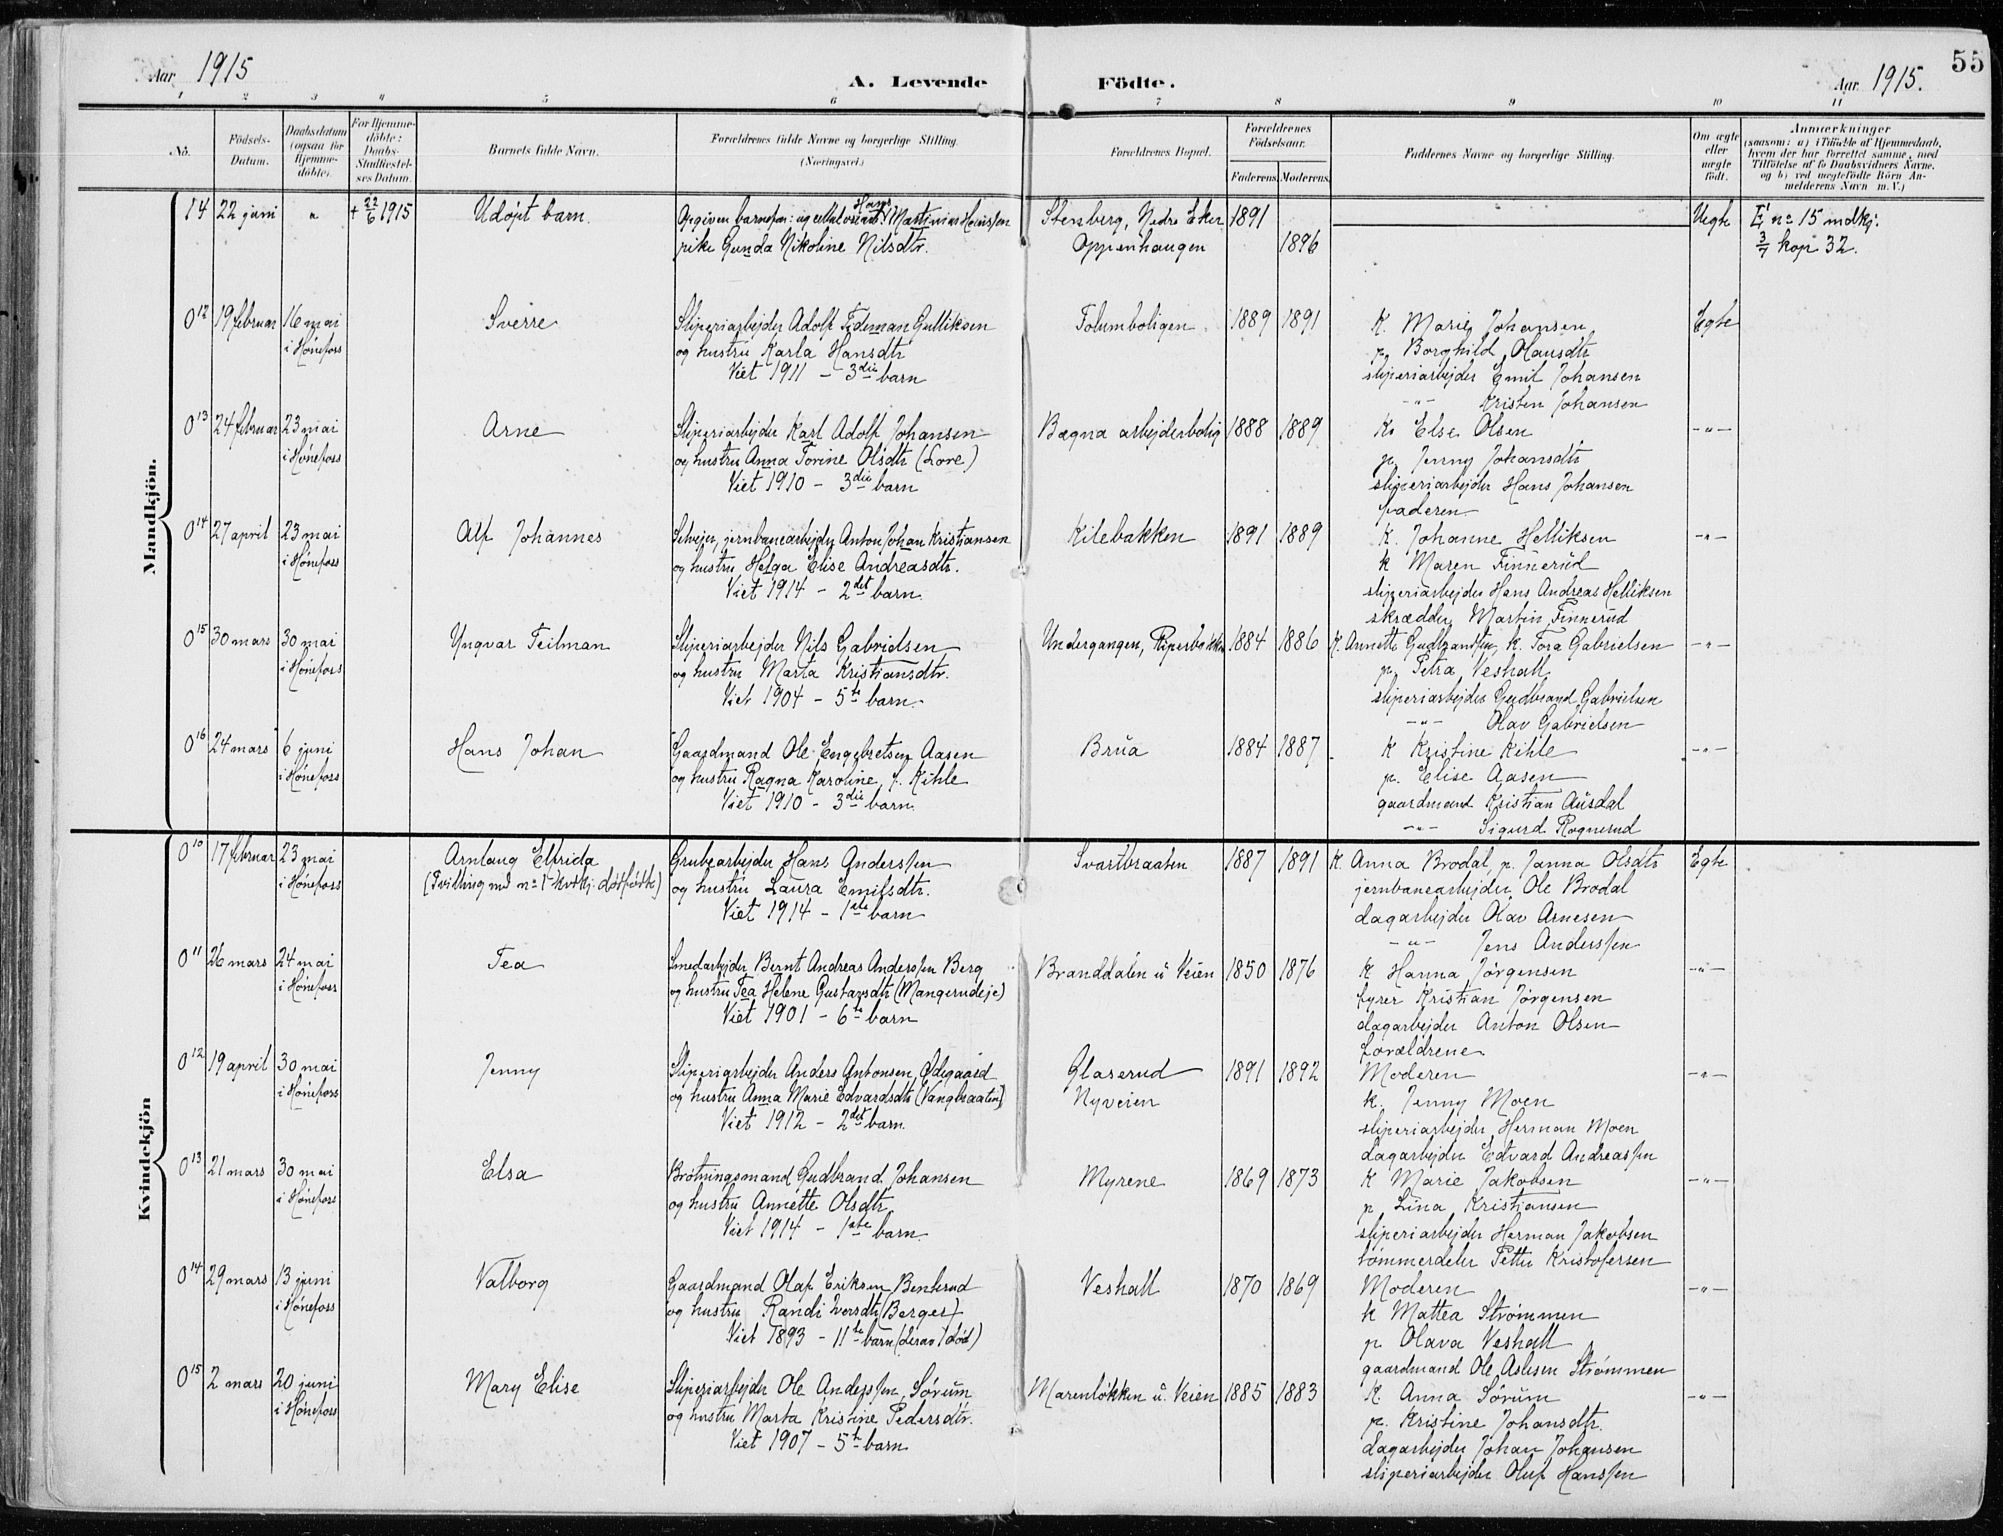 Aar 1915
A. Levende Födte.
Aar 1915.
55
1 2 3 4 5 6 7 8 9 10 11
No.
Födsels-Datum.
Daabsdatum (ogsaa for Hjemmedöbte).
For Hjemmedöbte: Daabs-Stadfæstelses Datum.
Barnets fulde Navn.
Forældrenes fulde Navne og borgerlige Stilling.
(Næringsvei.)
Forældrenes Bopæl.
Forældrenes Födselsaar.
Faderens. Moderens.
Faddernes Navne og borgerlige Stilling.
Om ægte eller uægte födt.
Anmærkninger
(saasom: a) i Tilfælde af Hjemmedaab, hvem der har forrettet samme, med Tilföielse af to Daabsvidners Navne, og b) ved uægtefödte Börn Anmelderens Navn m. V.)
Mandkjön.
14 22 juni " + 22/6 1915 Udøpt barn.
Opgiven barnefar: ugift Hans Martinius Hansſen Stenberg, Nedre Eker 1891 Uegte E' no 15 mdkj:
pike Gunda Nikoline Nilsdtr. Oppenhaugen 1896 3/7 kop 32.
0 12 19 februar 16 mai Sverre Sliperiarbejder Adolf Tideman Gulliksen Tolumboligen 1889 1891 K. Marie Johansen Egte
i Hønefoss og hustru Karla Hansdtr p. Borghild Hansdtr
Viet 1911 – 3die barn sliperiarbejder Emil Johansen
-"- Kristen Johansen
0 13 24 februar 23 mai Arne Sliperiarbejder Karl Adolf Johansen Bægna arbejderbolig 1888 1889 K. Else Olsen -"-
i Hønefoss og hustru Anna Torine Olsdtr (Lore) p. Jenny Johansdtr
Viet 1910 – 3die barn sliperiarbejder Hans Johansen
faderen
0 14 27 april 23 mai Alf Johannes Selveier, jernbanearbejder Anton Johan Kristiansen Kilebakken 1891 1889 K. Johanne Helliksen -"-
i Hønefoss og hustru Helga Elise Andreasdtr. k Maren Finnerud
Viet 1914 – 2det barn. sliperiarbejder Hans Andreas Helliksen
skrædder Martin Finnerud
0 15 30 mars 30 mai Yngvar Teilman Sliperiarbejder Nils Gabrielsen Undergangen, 1884 1886 K. Annette Gudbrandsen, k. Tora Gabrielsen -"-
i Hønefoss og hustru Marta Kristiansdtr. p. Petra Veshall
Viet 1904 – 5te barn. sliperiarbejder Gudbrand Gabrielsen
-"- Olav Gabrielsen
0 16 24 mars 6 juni Hans Johan Gaardmand Ole Engebretsen Aasen Brua 1884 1887 K Kristine Kihle -"-
i Hønefoss og hustru Ragna Karoline f. Kihle p. Elise Aasen
Viet 1910 – 3die barn. gaardmand Kristian Ausdal
-"- Sigurd Rognerud
Kvindekjön
0 10 17 februar 23 mai Arnlaug Elfrida Grubearbejder Hans Andersſen Svartbraaten 1887 1891 K Anna Brodal, p. Janna Olsdtr Egte
i Hønefoss (Tvilling med no 1 kvkj. dødfødte) og hustru Laura Emilsdtr. jernbanearbejder Ole Brodal
Viet 1914 – 1ste barn dagarbejder Olav Arnesen
-"- Jens Andersſen
0 11 26 mars 24 mai Tea Smedarbejder Bernt Andreas Andersſen Berg Branddalen u Veien 1850 1876 K Hanna Jørgensen -"-
i Hønefoss og hustru Tea Helene Gustavsdtr (Mangerudeje) fyrer Kristian Jørgensen
Viet 1901 – 6te barn dagarbejder Anton Olsen
forældrene
0 12 19 april 30 mai Jenny Sliperiarbejder Anders Antonsen Ødegaard Glaserud 1891 1892 Moderen -"-
i Hønefoss og hustru Anna Marie Edvardsdtr (Vangbraaten) Nyveien k. Jenny Moen
Viet 1912 – 2det barn. sliperiarbejder Herman Moen
dagarbejder Edvard Andreasſen
0 13 21 mars 30 mai Elsa Brøtningsmand Gudbrand Johansen Myrene 1869 1873 K Marie Jakobsen -"-
i Hønefoss og hustru Annette Olsdtr p Lina Kristiansen
Viet 1914 – 1ste barn. sliperiarbejder Herman Jakobsen
tømmerdeler Petter Kristofersen
0 14 29 mars 13 juni Valborg Gaardmand Olaf Eriksen Benterud Veshall 1870 1869 Moderen -"-
i Hønefoss og hustru Randi Iversdtr (Berger) k Mattea Strømmen
Viet 1893 – 11te barn (derav 1 død) p Olava Veshall
gaardmand Ole Aslesen Strømmen
0 15 2 mars 20 juni Mary Elise Sliperiarbejder Ole Andersſen Sørum Marenløkken u. Veien 1885 1883 K. Anna Sørum -"-
i Hønefoss og hustru Marta Kristine Pedersdtr. p. Kristine Johansdtr.
Viet 1907 – 5te barn dagarbejder Johan Johansen
sliperiarbejder Oluf Hansſen